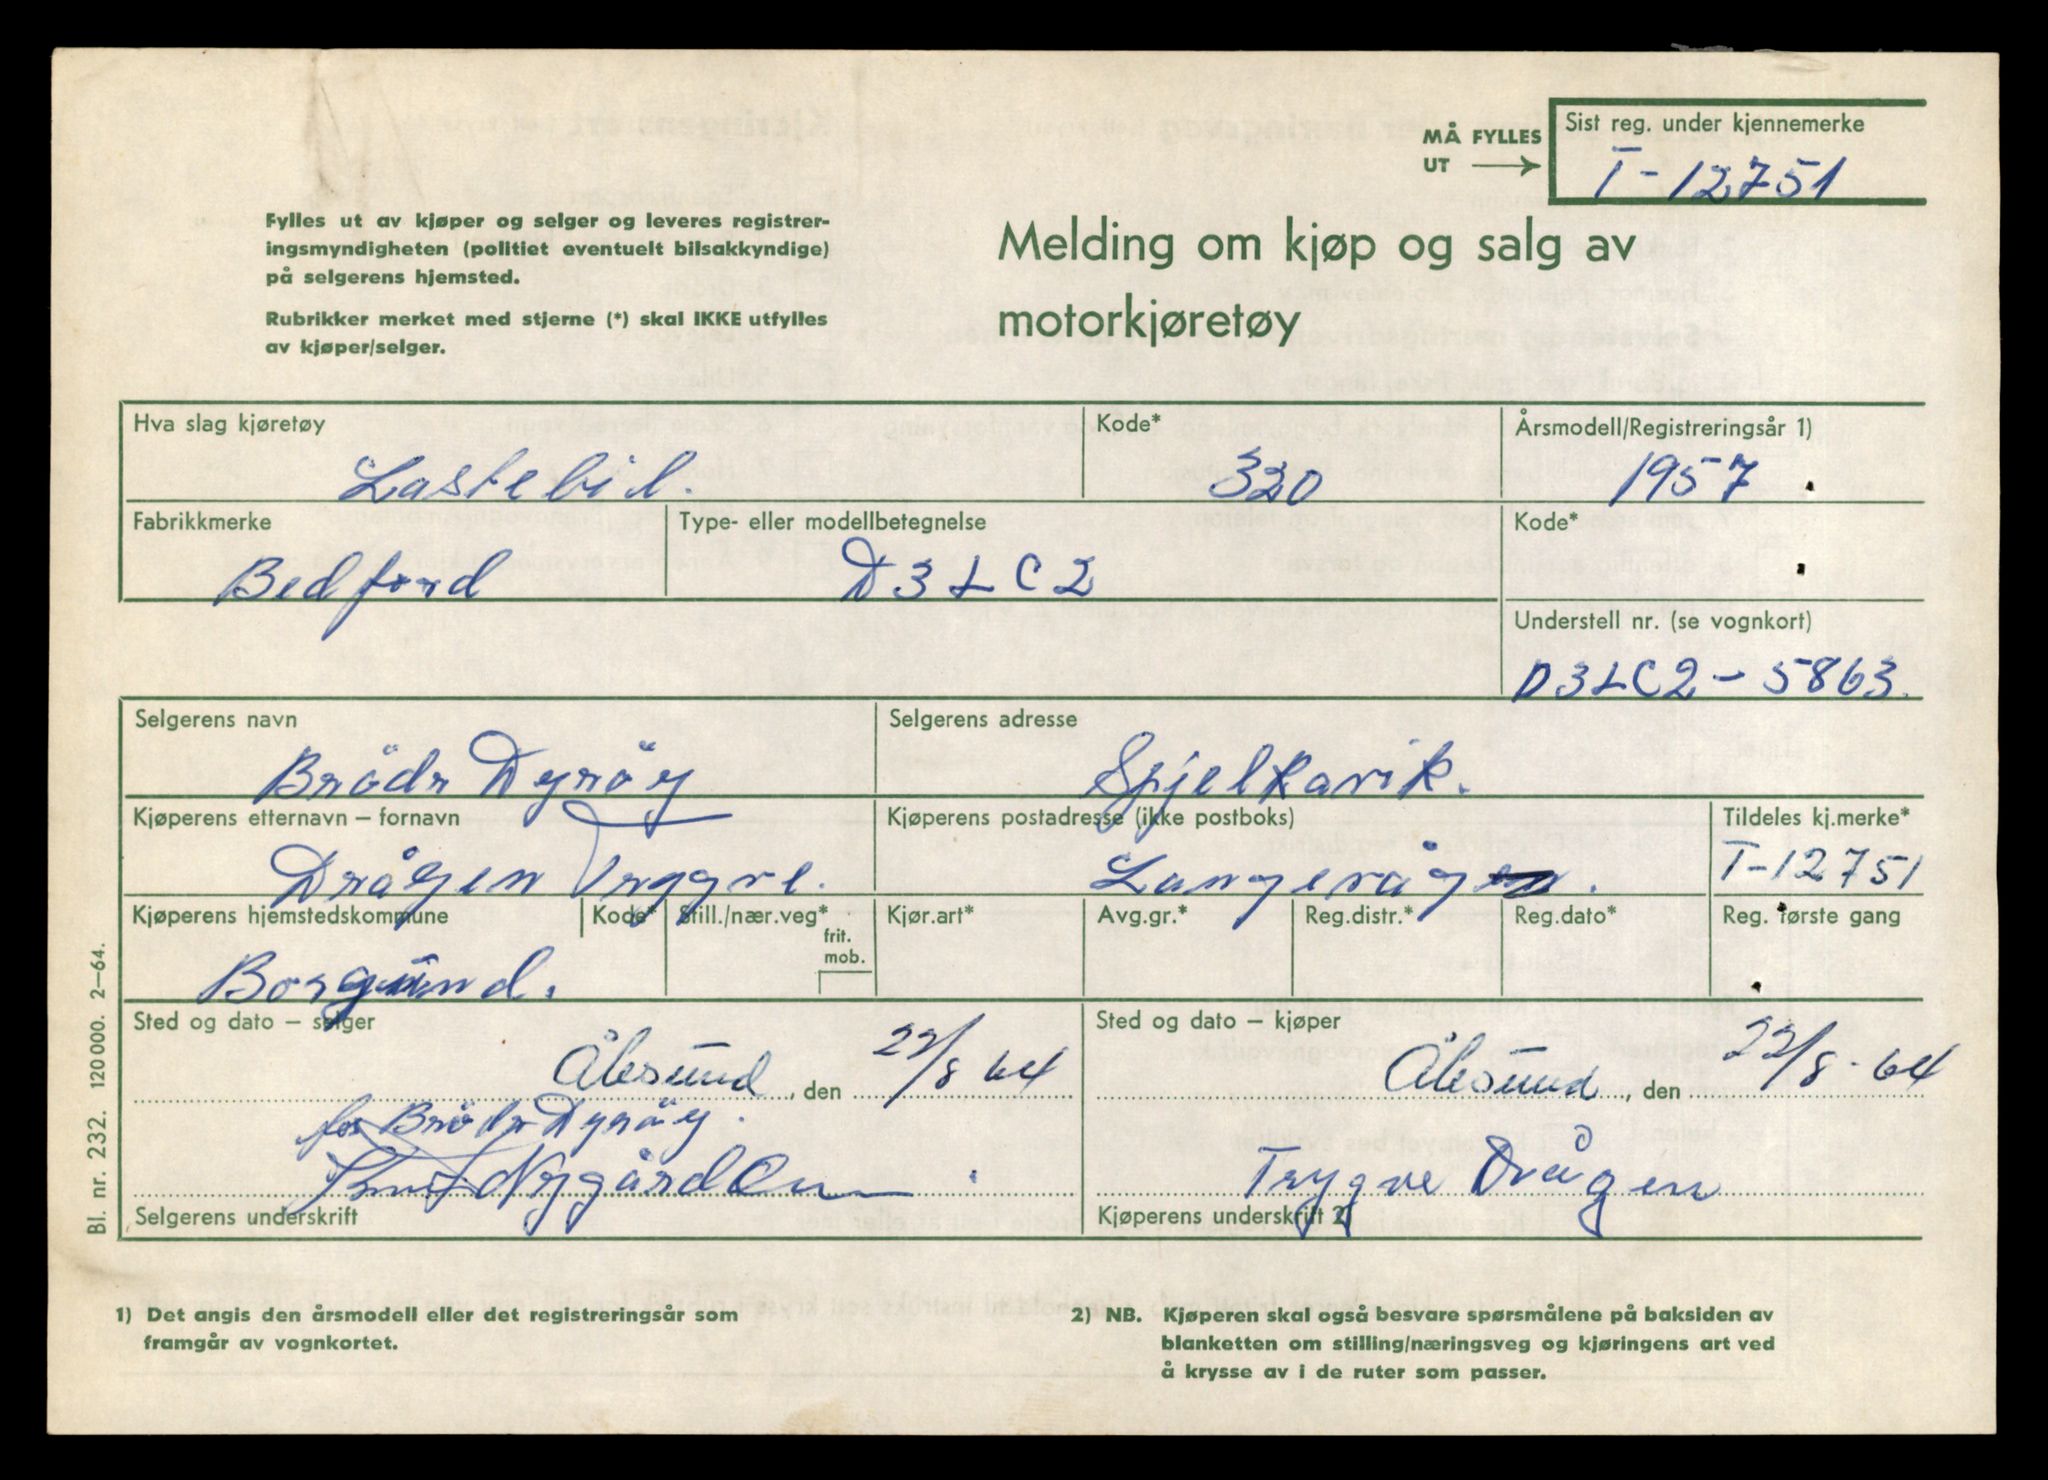 MÅ FYLLES
UT
Sist reg. under kjennemerke
T-12751
Fylles ut av kjøper og selger og leveres registrer-
ingsmyndigheten (politiet eventuelt bilsakkyndige)
på selgerens hjemsted.
Rubrikker merket med stjerne (*) skal IKKE utfylles
av kjøper/selger.
Melding om kjøp og salg av
motorkjøretøy
Hva slag kjøretøy
Lastebil.
Kode*
330
Årsmodell/Registreringsår 1)
1957
Fabrikkmerke
Bedford
Type- eller modellbetegnelse
D3LC2
Kode*
Understell nr. (se vognkort)
D3LC2-5863.
Selgerens navn
Brödr Dyröy
Selgerens adresse
Spjelkavik.
Kjøperens etternavn – fornavn
Drågen Tryggve.
Kjøperens postadresse (ikke postboks)
Langevåg.
Tildeles kj.merke*
T-12751
Kjøperens hjemstedskommune
Borgund.
Kode*
Still./nær.veg*
frit.
mob.
Kjør.art*
Avg.gr.*
Reg.distr.*
Reg.dato*
Reg. første gang
Sted og dato – selger
Ålesund, den 22/8 64
for Brödr Dyröy.
Selgerens underskrift
Sted og dato – kjøper
Ålesund, den 22/8-64
Trygve Drågen
Kjøperens underskrift 2)
Bl. nr. 232. 120 000. 2–64.
1) Det angis den årsmodell eller det registreringsår som
framgår av vognkortet.
2) NB. Kjøperen skal også besvare spørsmålene på baksiden av
blanketten om stilling/næringsveg og kjøringens art ved
å krysse av i de ruter som passer.